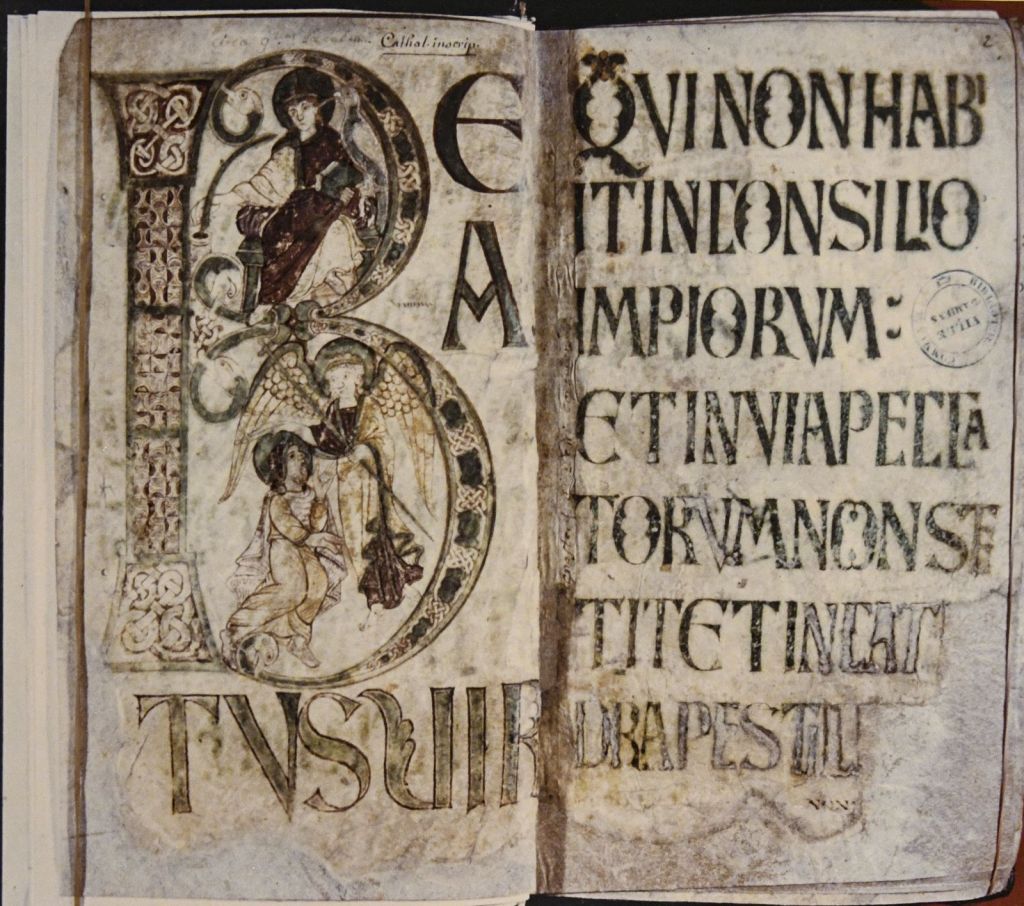 Cathal. inscrip.
BE
A
TVSUIR
2
QVI NON HABI
IT IN CONSILIO
IMPIORVM:
ET IN VIA PECCA
TORVM NON STE
TIT ET IN CAT
DRA PESTIL
VILLE D'AMIENS